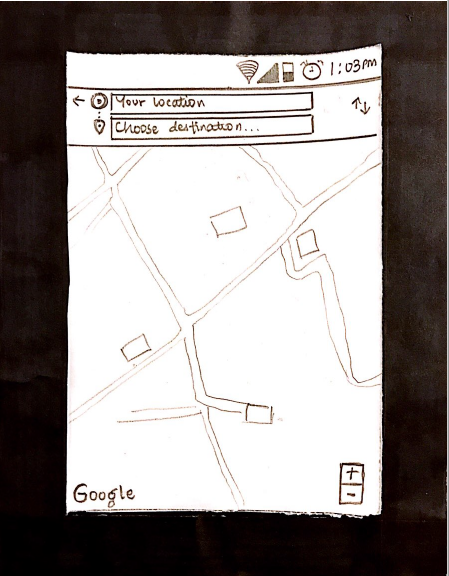 1:03pm
Your location
Choose destination...
+
-
Google